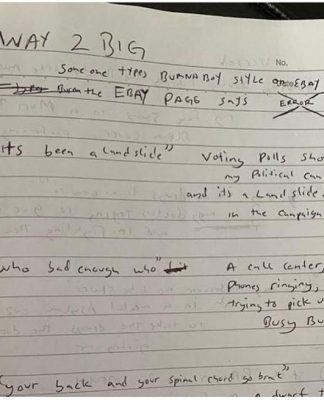 WAY 2 BIG
No.
Some one types BURNABOY STYLE on EBAY
But the EBAY PAGE says ERROR
its been a landslide"
Voting Polls Sho
my Political can
and its a Landslide.
in the campaign
who bad enough who"
A call center,
Phones ringing,
trying to pick u
Busy Bu
"your back and your spinal chord go brat"
a dwarf t